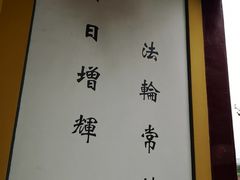 法輪常
日增輝